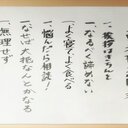 一、挨拶はきちんと
一、なるべく諦めない
一、よく寝、よく食べる
一、悩んだら相談!
一、なせば大抵なんとかなる
一、無理せず